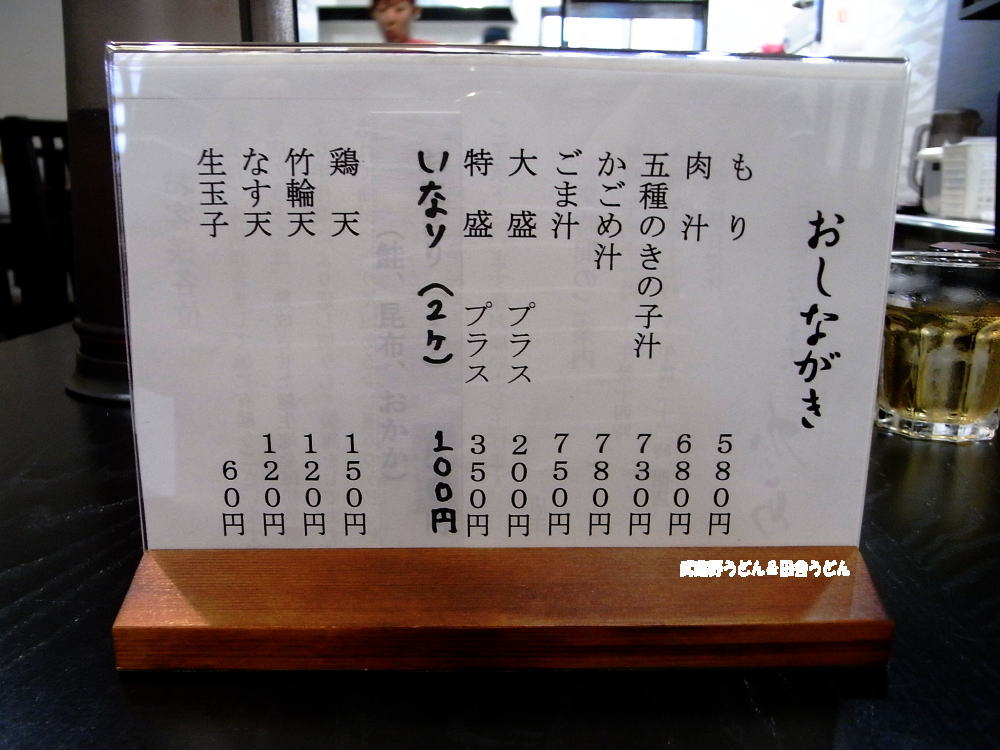 おしながき
もり 580円
肉汁 680円
五種のきの子汁 730円
かごめ汁 780円
ごま汁 750円
大盛 プラス 200円
特盛 プラス 350円
いなり(2ケ) 100円
鶏天 150円
竹輪天 120円
なす天 120円
生玉子 60円
(鮭、昆布、おかか)
武蔵野うどん&田舎うどん